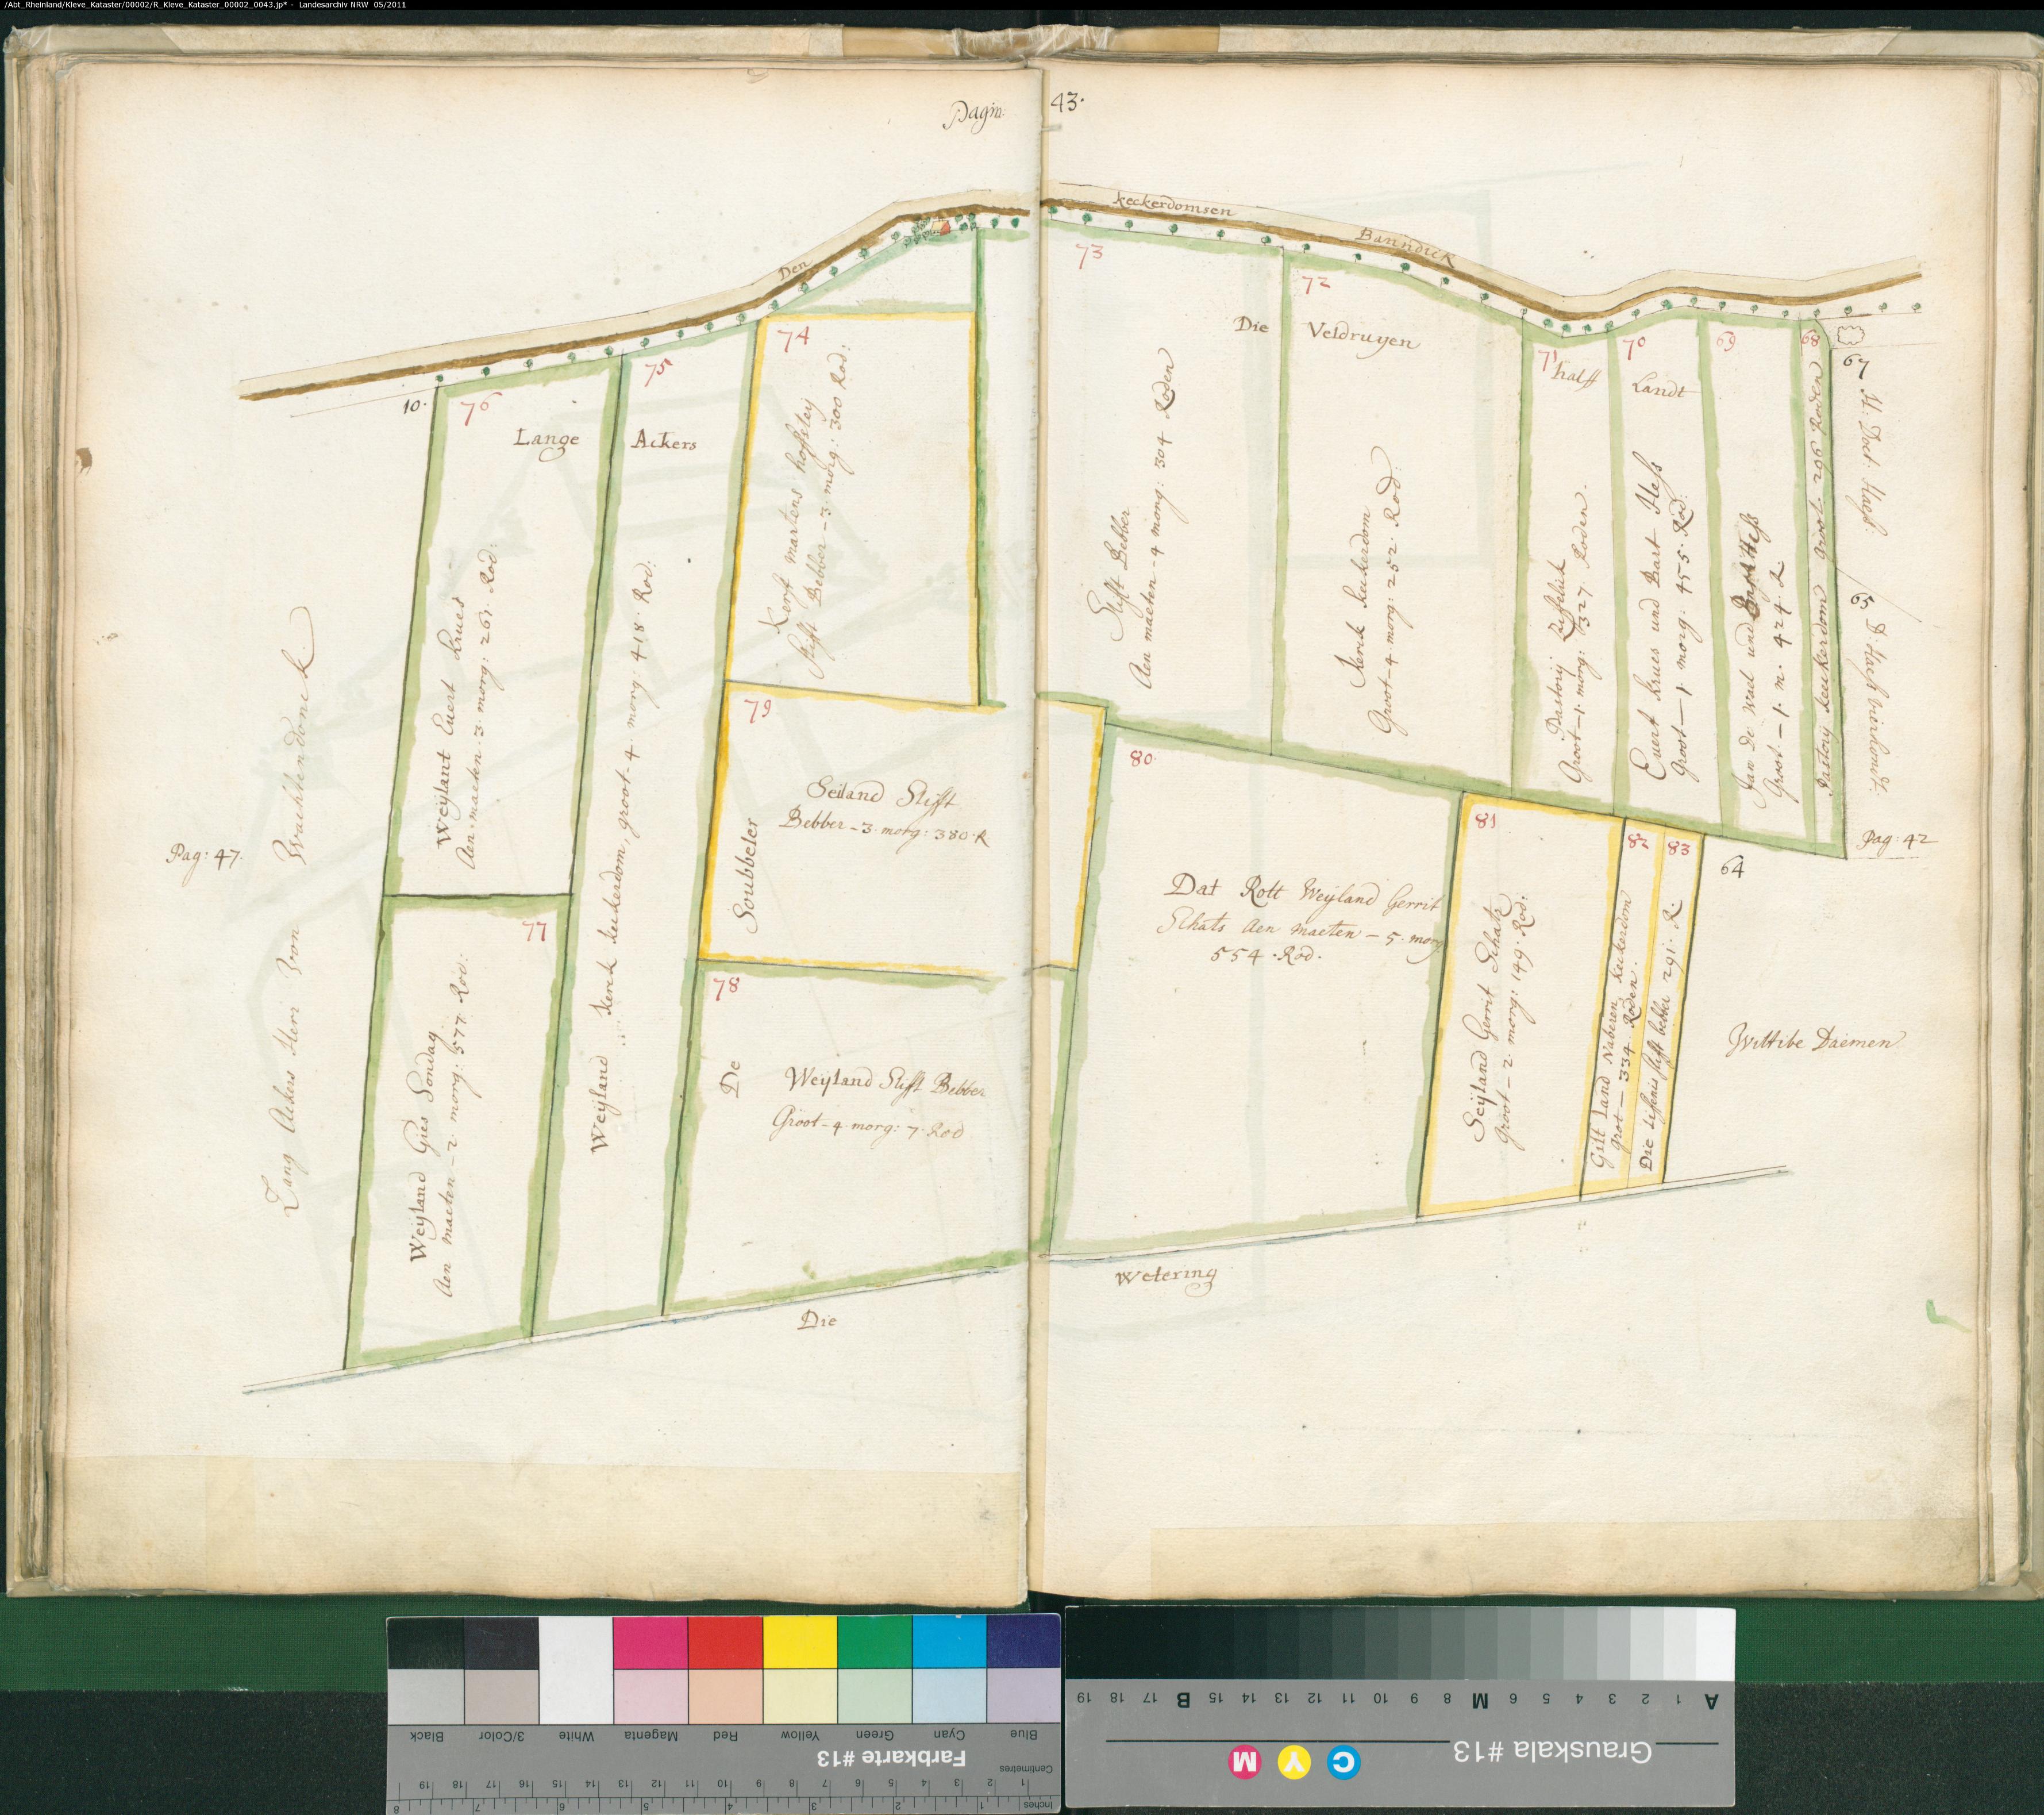 /Abt_Rheinland/Kleve_Kataster/00002/R_Kleve_Kataster_00002_0043.jp* - Landesarchiv NRW 05/2011
Pagin: 43.
Den keckerdomsen Banndick
10.
76
Lange
75
Ackers
74
73
Die
72
Veldruyen
71
halff
70
Landt
69
68
67
65
Pag: 47.
Lang Ackers Herr von Wachhendonck
Weÿlant Euert Krues
Aen maeten 3 morg: 261 Rod:
77
Weÿland Gies Sondag
Aen maeten - 2 morg: 577 Rod:
Weÿland kerck keekerdom, groot - 4 morg: 418 Rod:
Kerst martens hoffsteÿ
Stift Bebber - 3 morg: 300 Rod:
79
Soubbeler
Seiland Stifft
Bebber - 3 morg: 380 R
78
De
Weÿland Stifft Bebber
Groot - 4 morg: 7 Rod
Stift Bebber
Aen maeten - 4 morg: 304 Roden
Kerck keekerdom
Groot - 4 morg: 252 Rod:
Pastorij
Groot - 1 morg: 327 Roden.
Euert Krues und Bart Hess
Groot - 1 morg: 455 Rod:
Jan de und Hess
Groot - 1 m. 424 R
Pastorij keekerdom Groot 296 Roden
Pag: 42
80
Dat Rott Weÿland Gerrit
Schats Aen maeten - 5 morg
554 Rod.
81
Seÿland Gerrit Schats
Groot - 2 morg: 149 Rod:
82
Gilt Land Naberen keekerdom
Grot - 334 Roden.
83
Die stifft bebber 291 R.
64
Wittibe Daemen
Die Wetering
Black
3/Color
White
Magenta
Red
Yellow
Green
Cyan
Blue
Farbkarte #13
Centimetres
19 18 17 16 15 14 13 12 11 10 9 8 7 6 5 4 3 2 1
Inches
8 7 6 5 4 3 2 1
A 1 2 3 4 5 6 M 8 9 10 11 12 13 14 15 B 17 18 19
Grauskala #13
C Y M